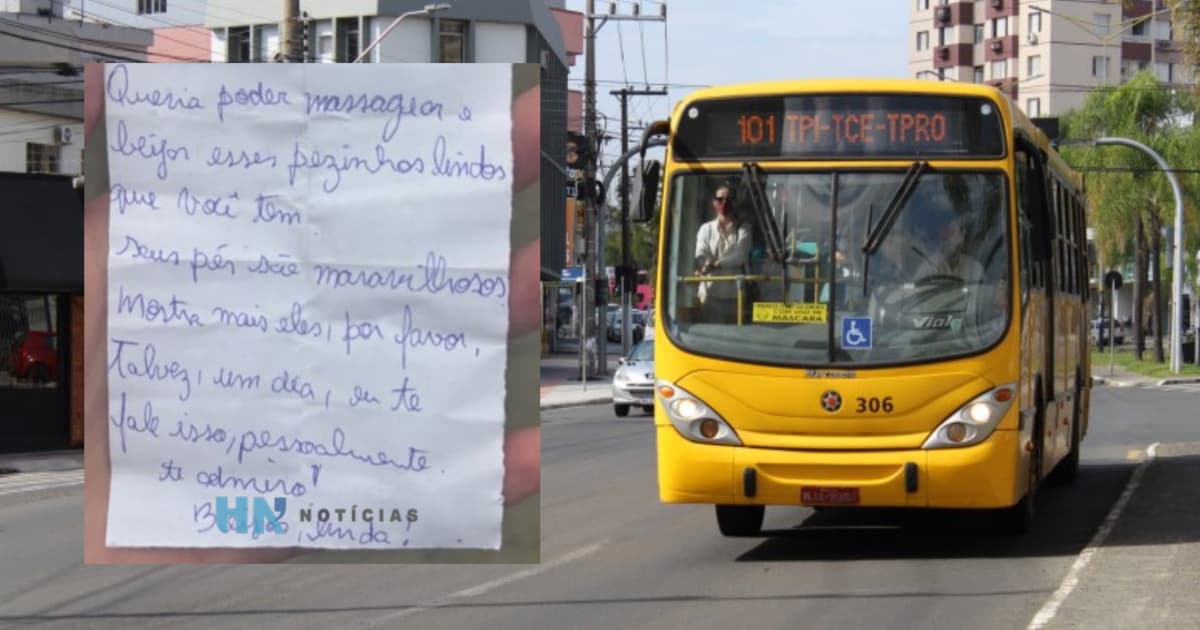 Queria poder massagear e
beijar esses pezinhos lindos
que você tem.
seus pés são maravilhosos,
Mostra mais eles, por favor,
Talvez, um dia, eu te
fale isso, pessoalmente.
te admiro!
Beijos, linda!
HN NOTÍCIAS
101 TPI-TCE-TPRO
COM USO DE
MÁSCARA
Viale
306